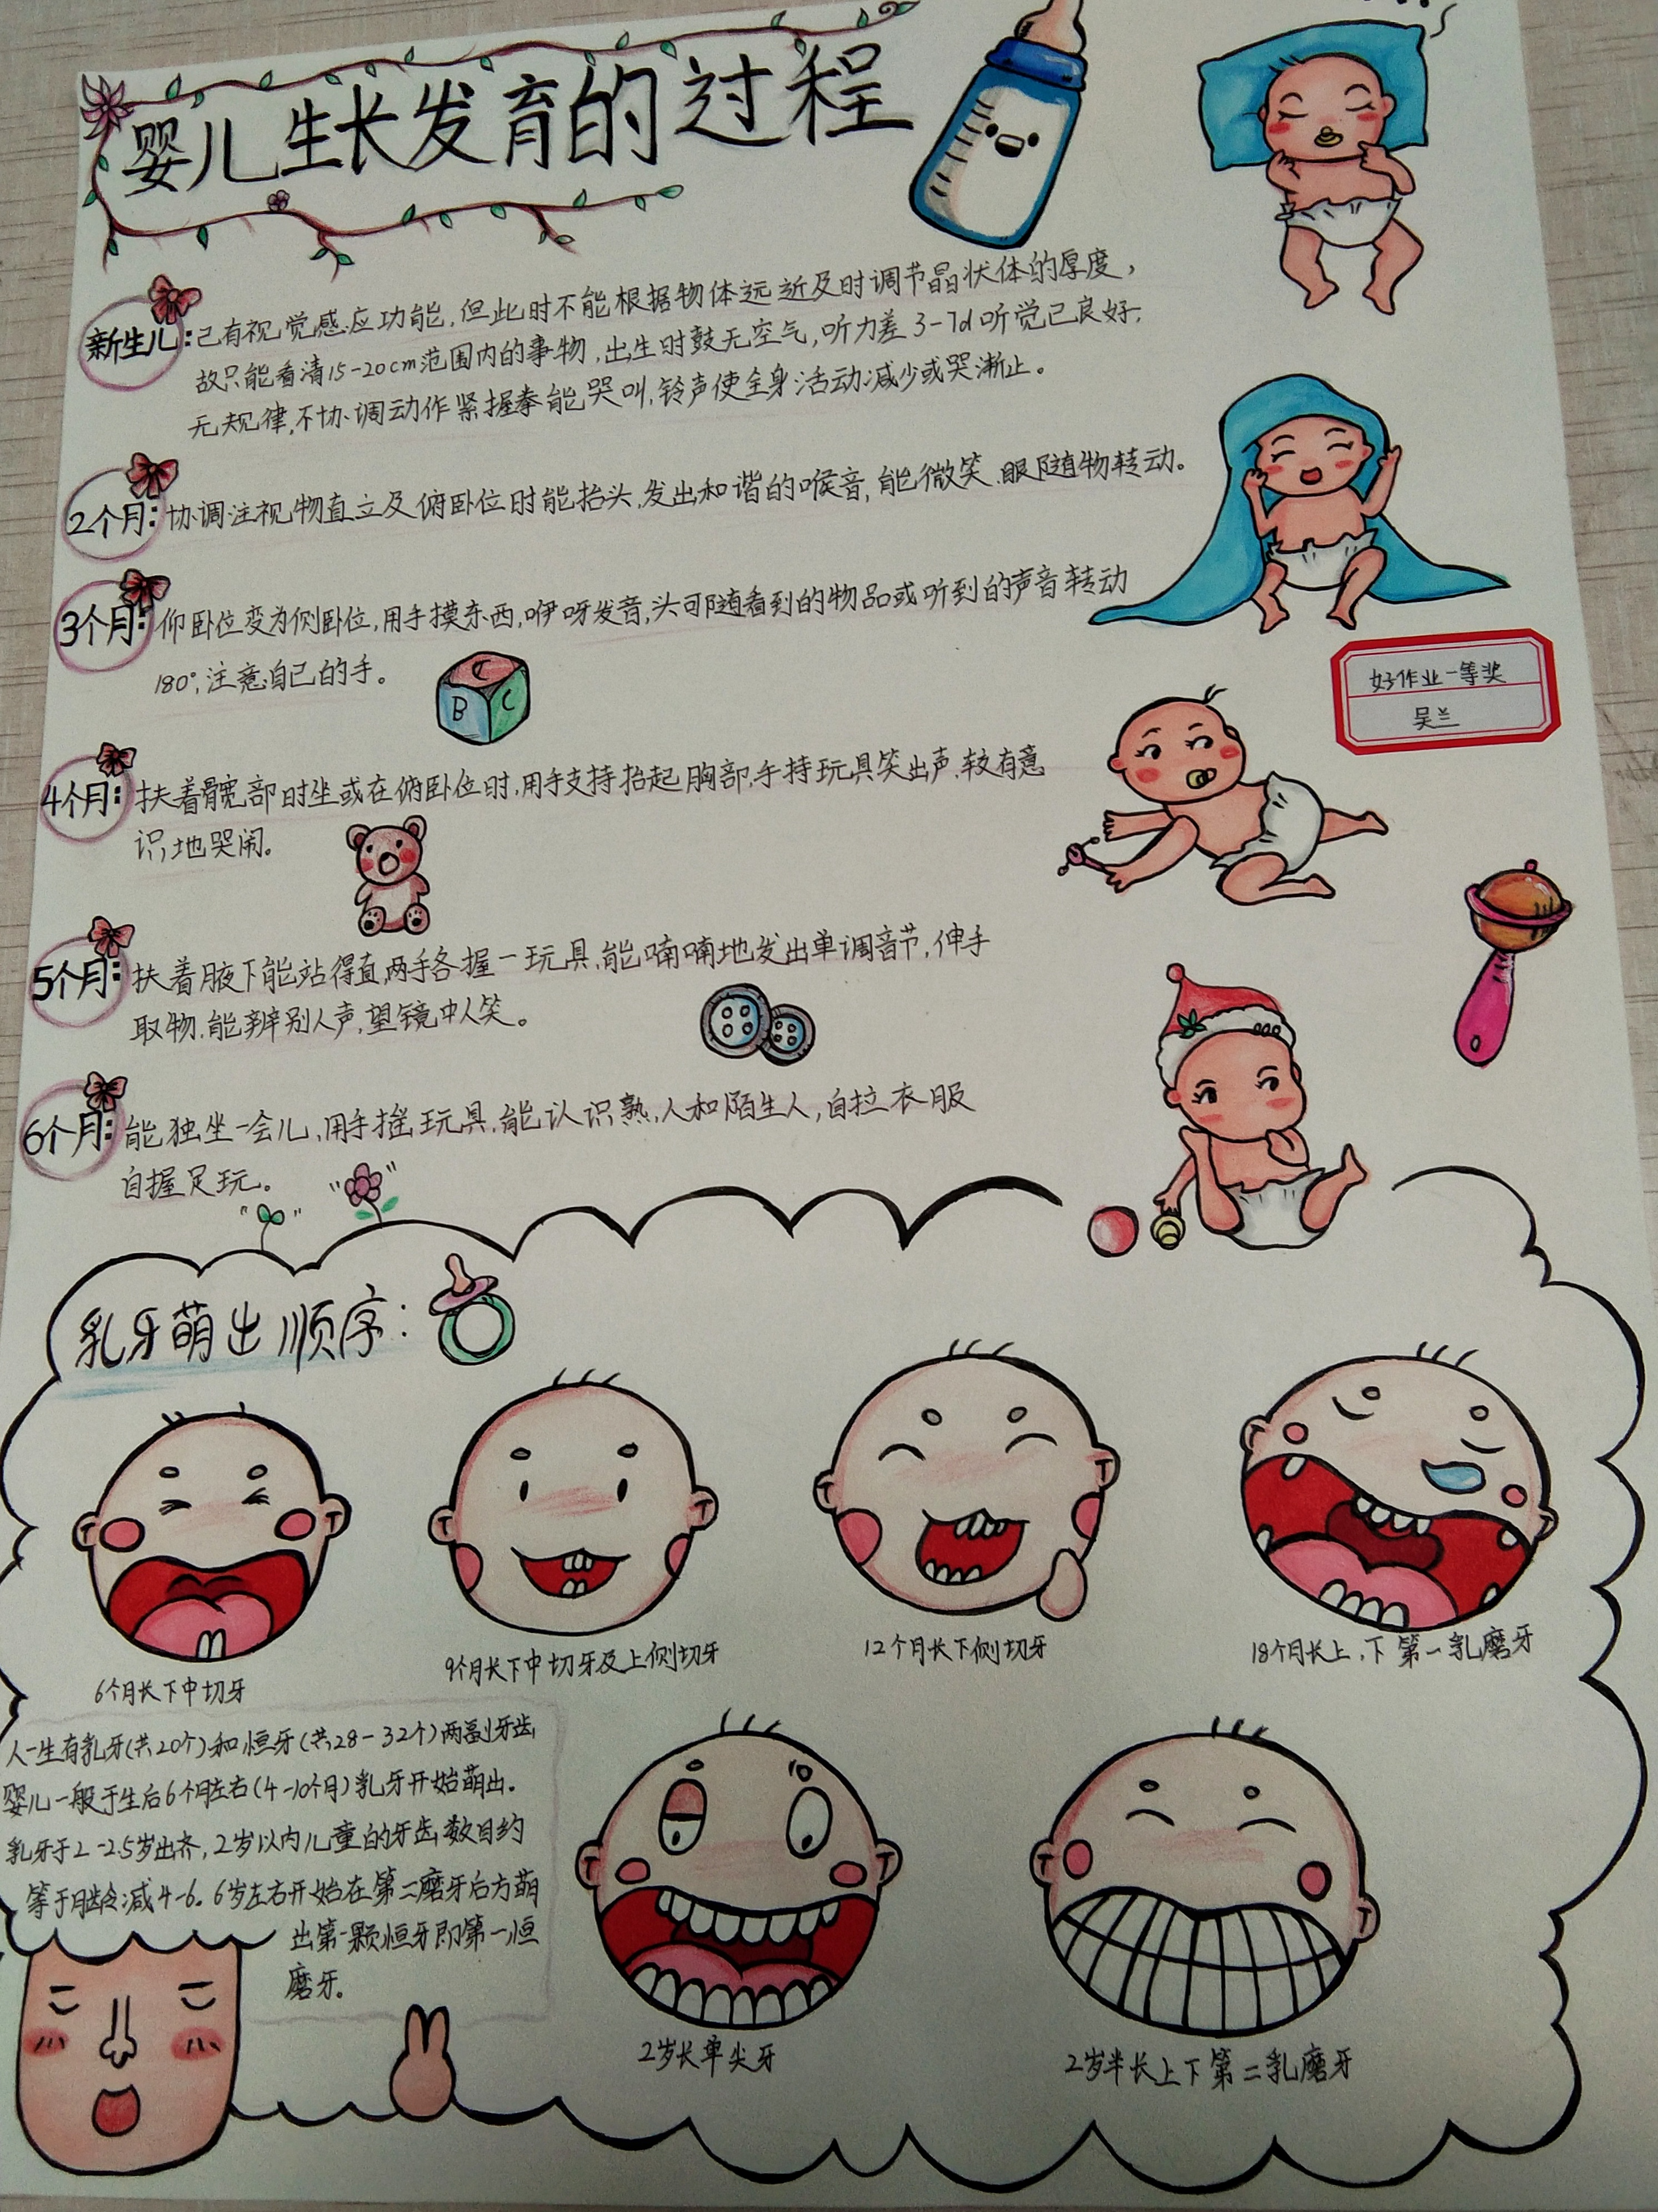 婴儿生长发育的过程
新生儿:已有视觉感应功能,但此时不能根据物体远近及时调节晶状体的厚度,
故只能看清15-20cm范围内的事物,出生时鼓无空气,听力差3-7d听觉已良好.
无规律,不协调动作紧握拳能哭叫,铃声使全身活动减少或哭渐止。
2个月:协调注视物直立及俯卧位时能抬头,发出和谐的喉音,能微笑.眼随物转动。
3个月:仰卧位变为侧卧位,用手摸东西,咿呀发音,头可随看到的物品或听到的声音转动
180°,注意自己的手。
C
B C
好作业一等奖
吴兰
4个月:扶着髋部时坐或在俯卧位时,用手支持抬起胸部,手持玩具笑出声.较有意
识地哭闹。
5个月:扶着腋下能站得直,两手各握一玩具,能喃喃地发出单调音节,伸手
取物,能辨别人声,望镜中人笑。
6个月:能独坐一会儿,用手摇玩具,能认识熟人和陌生人,自拉衣服
自握足玩。
乳牙萌出顺序:
6个月长下中切牙
9个月长下中切牙及上侧切牙
12个月长下侧切牙
18个月长上,下第一乳磨牙
人一生有乳牙(共20个)和恒牙(共28-32个)两副牙齿
婴儿一般于生后6个月左右(4-10个月)乳牙开始萌出.
乳牙于2-2.5岁出齐,2岁以内儿童的牙齿数目约
等于月龄减4-6.6岁左右开始在第二磨牙后方萌
出第一颗恒牙即第一恒
磨牙。
2岁长单尖牙
2岁半长上下第二乳磨牙